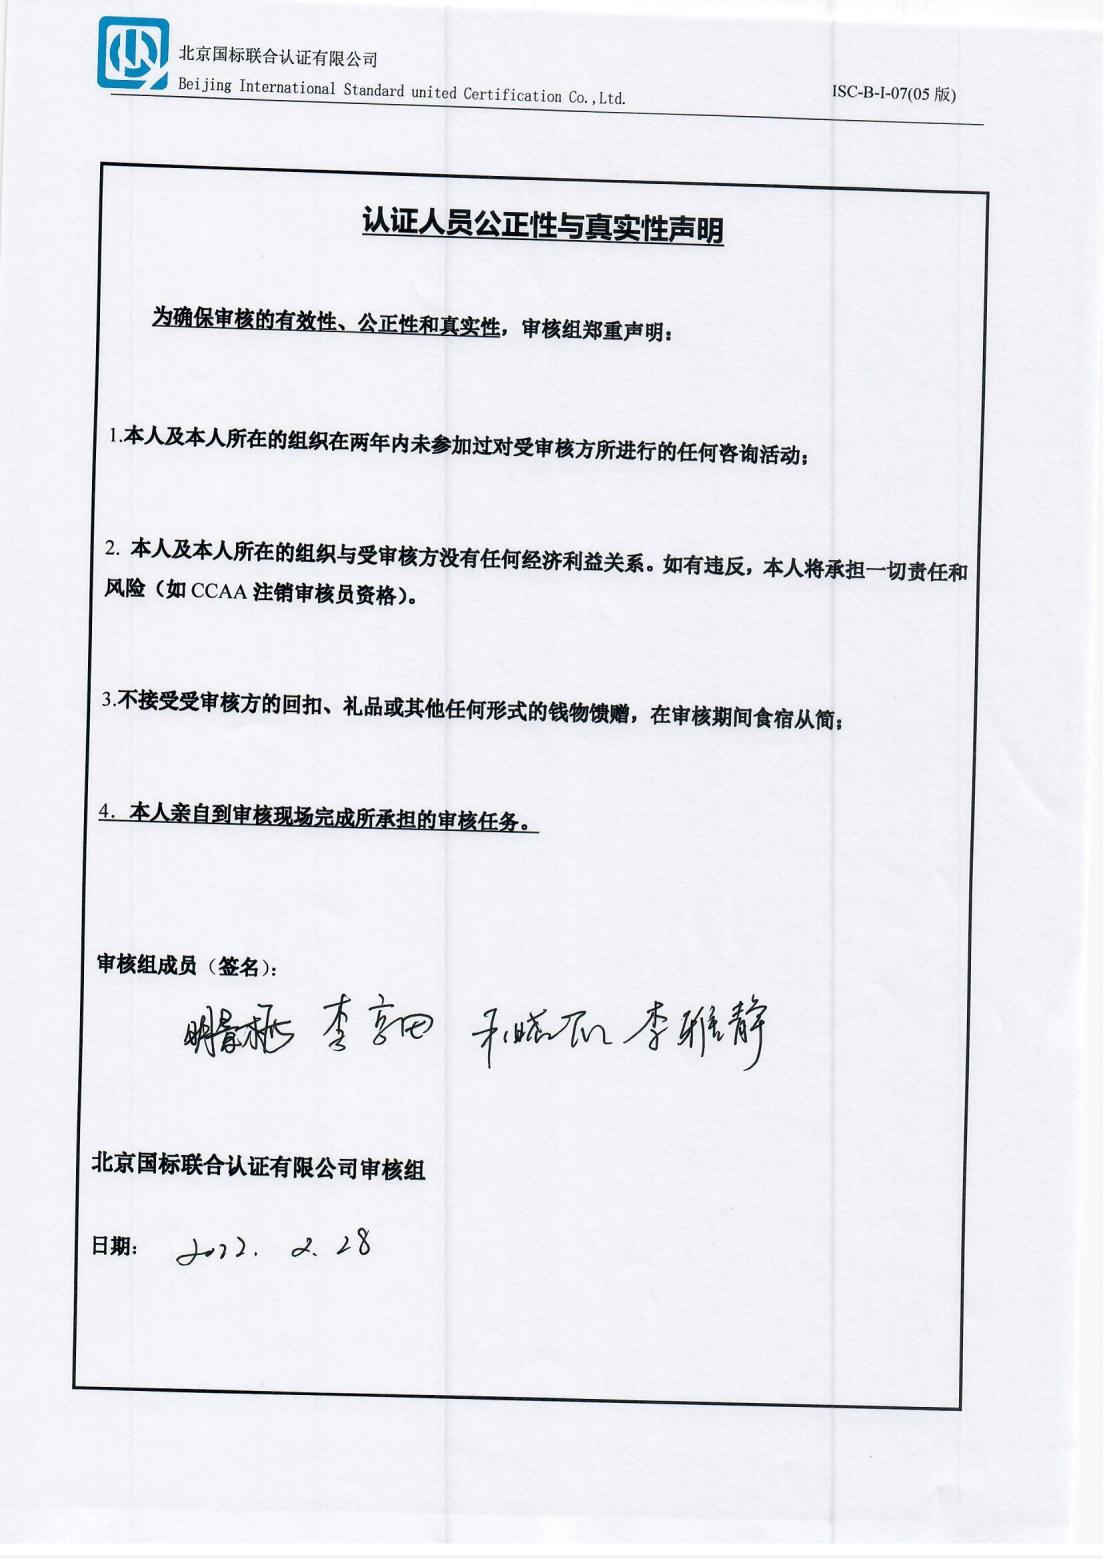 北京国标联合认证有限公司
Beijing International Standard united Certification Co.,Ltd.
ISC-B-I-07(05 版)
认证人员公正性与真实性声明
为确保审核的有效性、公正性和真实性，审核组郑重声明：
1.本人及本人所在的组织在两年内未参加过对受审核方所进行的任何咨询活动；
2. 本人及本人所在的组织与受审核方没有任何经济利益关系。如有违反，本人将承担一切责任和
风险（如 CCAA 注销审核员资格）。
3.不接受受审核方的回扣、礼品或其他任何形式的钱物馈赠，在审核期间食宿从简；
4. 本人亲自到审核现场完成所承担的审核任务。
审核组成员（签名）：
李雅静
北京国标联合认证有限公司审核组
日期： 2022. 2. 28